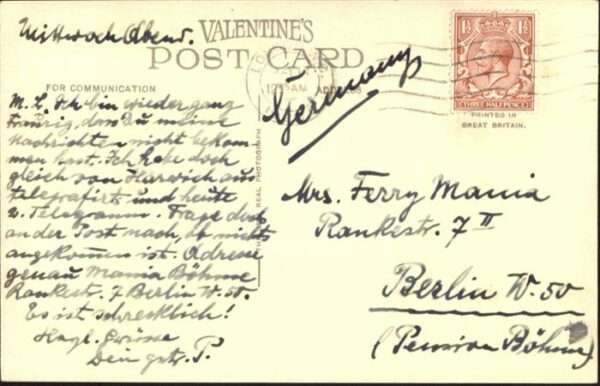 Mittwoch Abend.
VALENTINE'S
POST CARD
FOR COMMUNICATION
ADDRESS
M. L. Ich bin wieder ganz
traurig, dass Du meine
Nachrichten nicht bekom-
men hast. Ich habe doch
gleich von Harwich aus
telegrafirt und heute
2. Telegramm. Frage doch
an der Post nach, ob nichts
angekommen ist. Adresse
genau Mania Böhme
Rankestr. 7 Berlin W. 50.
Es ist schrecklich!
Grüsse
Dein P.
REAL PHOTOGRAPH
Germany
1½ 1½
THREE HALFPENCE
PRINTED IN
GREAT BRITAIN.
Mrs. Ferry Mania
Rankestr. 7 II
Berlin W. 50
(Pension Böhme)